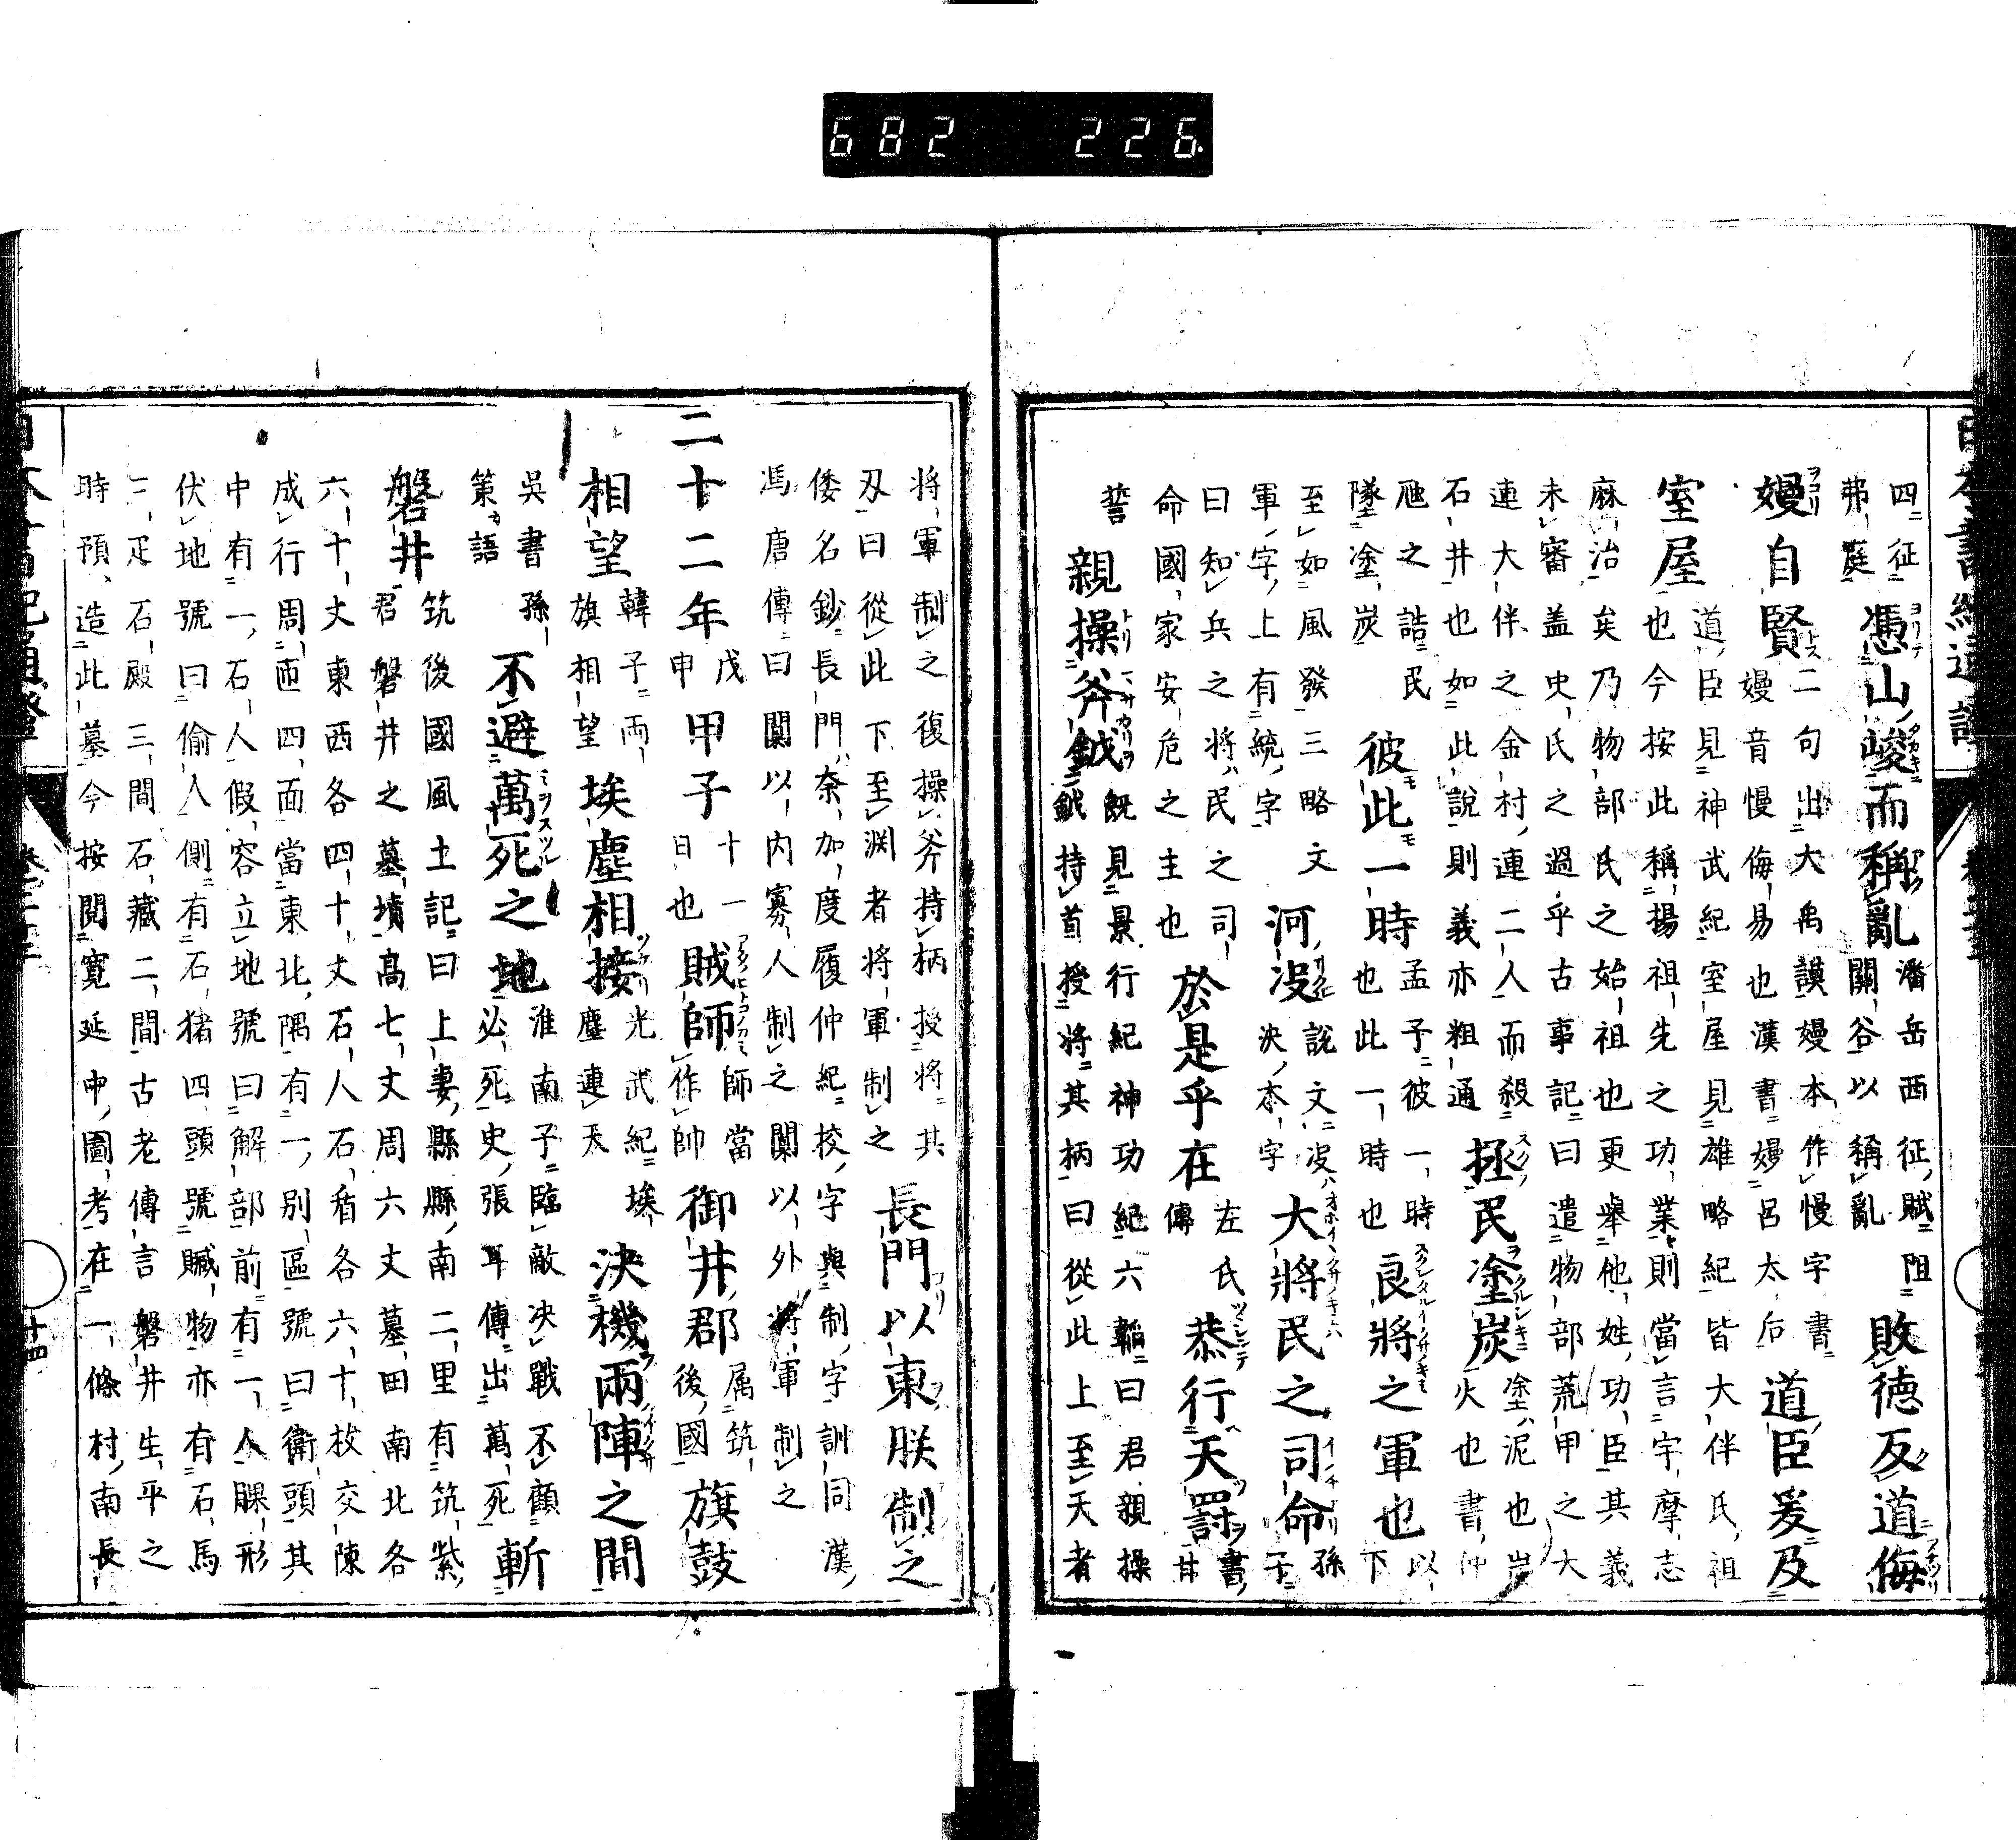 682 226
四征
弗庭 憑山峻而稱亂 潘岳西征賦阻
關谷以稱亂 敗德反道侮
嫚自賢 二句出大禹謨嫚本作慢字書
嫚音慢侮易也漢書嫚呂太后 道臣爰及
室屋 道臣見神武紀室屋見雄略紀皆大伴氏祖
也今按此稱揚祖先之功業則當言宇摩志
麻治矣乃物部氏之始祖也更舉他姓功臣其義
未審盖史氏之過乎古事記曰遣物部荒甲之大
連大伴之金村連二人而殺
石井也如此說則義亦粗通 拯民塗炭 塗泥也炭
火也書仲
虺之誥民
墜塗炭 彼此一時 孟子彼一時
也此一時也 良將之軍也 以下
至如風發三略文
軍字上有統字 河决 說文
决本字 大將民之司命 孫子
曰知兵之將民之司
命國家安危之主也 於是乎在 左氏
傳 恭行天罰 書甘
誓 親操斧鉞 既見景行紀神功紀六韜曰君親操
鉞持首授將其柄曰從此上至天者
將軍制之復操斧持柄授將其
刃曰從此下至淵者將軍制之 長門以東朕制之
倭名鈔長門奈加度履仲紀挍字與制字訓同漢
馮唐傳曰闑以內寡人制之闑以外將軍制之
二十二年 戊
申 甲子 十一
日也 賊師 師當
作帥 御井郡 属筑
後國 旗鼓
相望 韓子兩
旗相望 埃塵相接 光武紀埃
塵連天 決機兩陣之間
吳書孫
策語 不避萬死之地 淮南子臨敵决戰不顧
必死史張耳傳出萬死 斬
磐井 筑後國風土記曰上妻縣縣南二里有筑紫
君磐井之墓墳高七丈周六丈墓田南北各
六十丈東西各四十丈石人石盾各六十枚交陳
成行周匝四面當東北隅有一別區號曰衙頭其
中有一石人假容立地號曰解部前有一人躶形
伏地號曰偷人側有石猪四頭號贓物亦有石馬
三疋石殿三間石藏二間古老傳言磐井生平之
時預造此墓今按閱寛延中圖考在一條村南長
十四